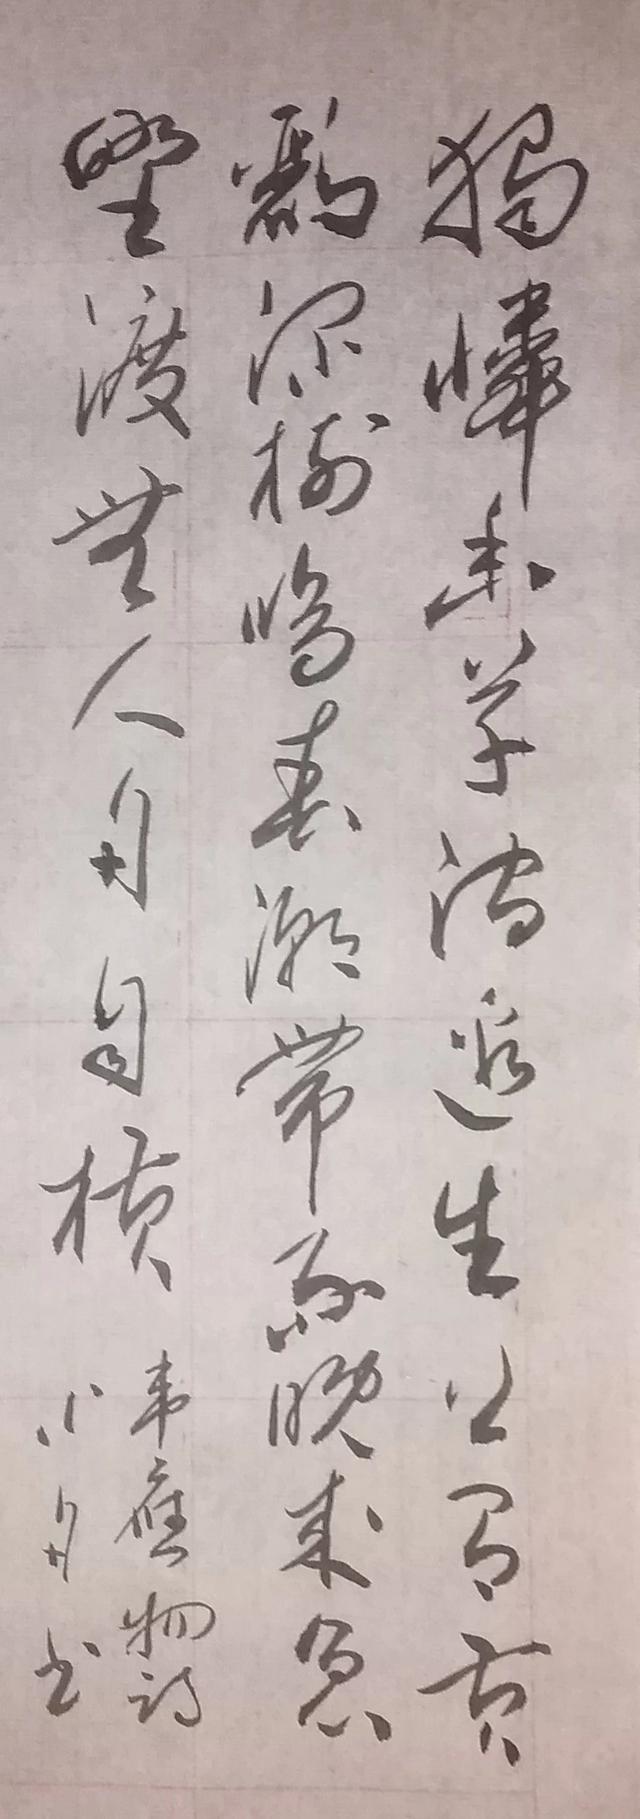 獨憐幽草澗邊生上有黃
鸝深樹鳴春潮帶雨晚來急
野渡無人舟自橫
韋應物詩
小舟書